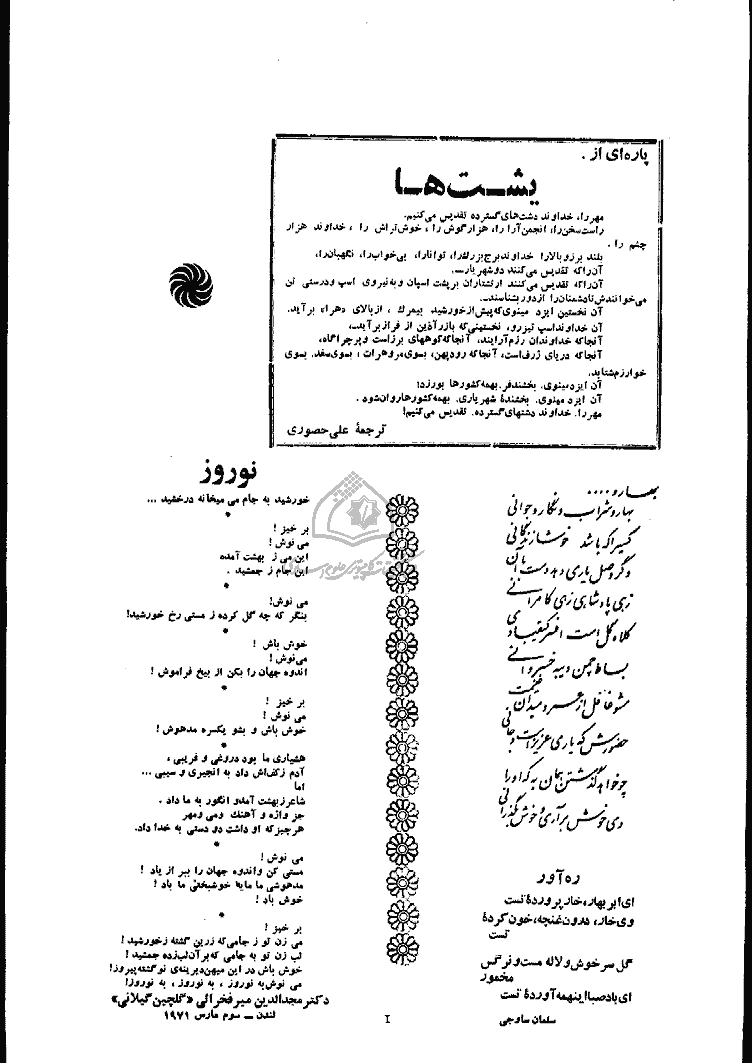 پاره‌ای از .
یشت‌ها
مهر را، خداوند دشت‌های گسترده تقدیس می‌کنیم.
راست‌سخن را، انجمن‌آرا را، هزار گوش را، خوش‌تراش را، خداوند هزار
چشم را.
بلند برزوبالارا خداوند برج بزرگ را، توانا را، بی‌خواب را، نگهبان را،
آن را که تقدیس می‌کنند دو شهریار...
آن را که تقدیس می‌کنند ارتشتاران بر پشت اسپان و به نیروی اسپ و درستی تن
می‌خوانندش تا دشمنان را از دور بشناسند...
آن نخستین ایزد مینوی که پیش از خورشید بیمرگ، از بالای «هرا» برآید.
آن خداوند اسپ تیزرو، نخستینی که با زر آذین از فراز برآید...
آنجا که خداوندان رزم‌آرایند، آنجا که کوههای برز است و پرچراگاه،
آنجا که دریای ژرف است، آنجا که رود پهن، بسوی مرو هرات، بسوی سغد. بسوی
خوارزم شتابد.
آن ایزد مینوی. بخشنده فر. بهمه کشورها بوزد!
آن ایزد مینوی. بخشندهٔ شهریاری. بهمه کشورها روان شود.
مهر را. خداوند دشتهای گسترده. تقدیس می‌کنیم!
ترجمهٔ علی‌حصوری
نوروز
خورشید به جام می میخانه درخشید ...
*
بر خیز !
می نوش !
این می ز بهشت آمده
این جام ز جمشید .
*
می نوش!
بنگر که چه گل کرده ز مستی رخ خورشید!
*
خوش باش !
می نوش !
اندوه جهان را بکن از بیخ فراموش !
*
بر خیز !
می نوش !
خوش باش و بشو یکسره مدهوش !
*
هشیاری ما بود دروغی و فریبی ،
آدم ز کف‌اش داد به انجیری و سیبی ...
اما
شاعر ز بهشت آمد و انگور به ما داد .
جز واژه و آهنگ و می و مهر
هر چیز که او داشت دو دستی به خدا داد.
*
می نوش !
مستی کن و اندوه جهان را ببر از یاد !
مدهوشی ما مایهٔ خوشبختی ما باد !
خوش باد !
*
بر خیز !
می زن تو ز جامی که زرین گشته ز خورشید !
لب زن تو به جامی که بر آن لب زده جمشید !
خوش باش در این میهن دیرینه‌ی نو گشته پیروز!
می نوش به نوروز ، به نوروز ، به نوروز!
دکتر مجدالدین میر فخرائی «گلچین گیلانی»
لندن - سوم مارس ۱۹۷۱
بهار و ....
بهار و شراب و نگار و جوانی
کسی را که باشد خوشا زندگانی
وگر وصل یاری دهد دست با آن
زهی پادشاهی زهی کامرانی
کلاه گل است افسر کیقبادی
بساط چمن دیبه خسروانی
مشو غافل از عمر و میدان غنیمت
حضورش که یاری عزیز است و جانی
چو خواهد گذشتن همان به که او را
دمی خوش برآری و خوش بگذرانی
ره‌آورد
ای ابر بهار، خار پروردهٔ تست
وی خار، درون غنچه، خون کردهٔ
تست
گل سرخوش و لاله مست و نرگس
مخمور
ای باد صبا اینهمه آوردهٔ تست
سلمان ساوجی
I